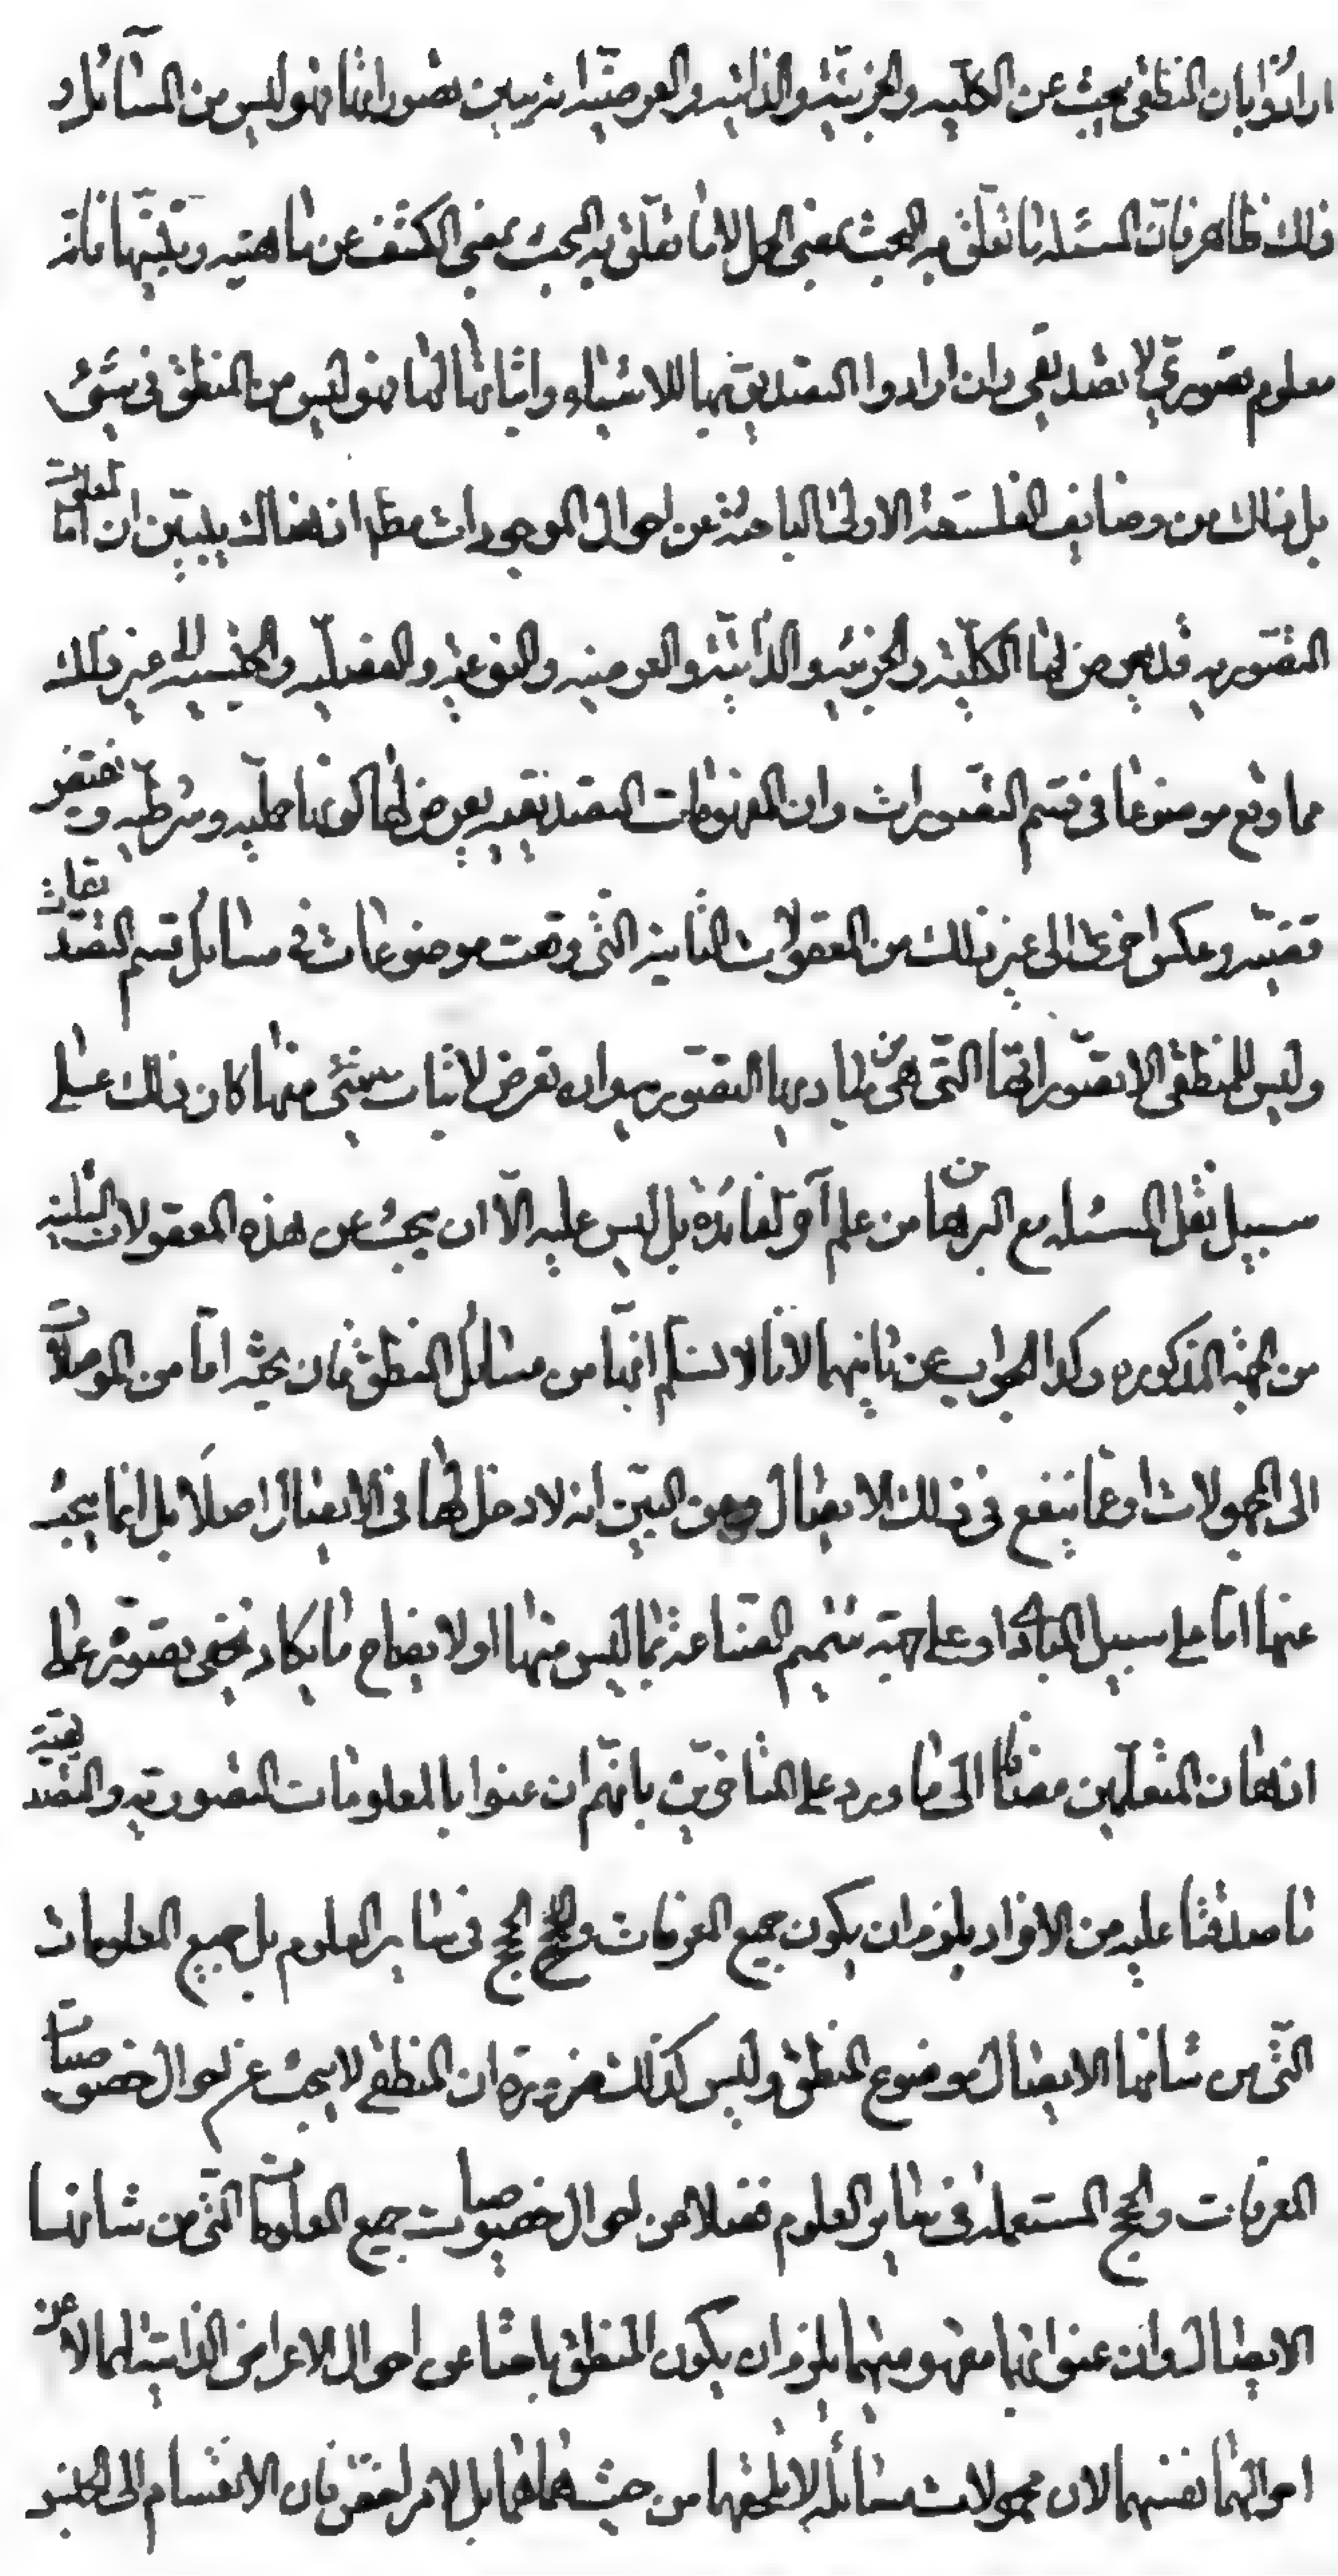 ارادوا بان المنطقى يبحث عن الكليه والجزئيه والذاتيه والعرضيه انه يبين تصوراتها فهو ليس من المسائل و
ذلك ظاهر فان المسئله ما تعلق به البحث بمعنى الحمل لا ما تعلق به البحث بمعنى الكشف عن ماهيته وبيّنها فانه
معلوم تصورىّ لا تصديقى وان ارادوا التصديق بها للاشياء واثباتها لها فهو ليس من المنطق فى شىء
بل ذلك من وضايف الفلسفة الاولى الباحثة عن احوال الموجودات مطلقا اذ هناك يتبين ان المعلومات
التصوريه قد يعرض لها الكليّة والجزئيه والذاتيّة والعرضيه والنوعيّه والفصليه والجنسيه الى غير ذلك
مما وقع موضوعا فى قسم التصورات وان المفهومات التصديقيه يعرض لها كونها حمليه وشرطيه ونقيض
قضيّه وعكس اخرى الى غير ذلك من المعقولات الثانيه التى وقعت موضوعات فى مسائل قسم التصديقات
وليس للمنطقى الا تصوّراتها التى هى من مباديها التصوريه وان تعرض لاثبات شىء منها كان ذلك على
سبيل نقل المسئله مع البرهان من علم آخر لفائدة بل ليس عليه الّا ان يبحث عن هذه المعقولات الثانيه
من الجهة المذكوره وكذا الجواب عن ثانيهما لانا لا نسلم انها من مسائل المنطق فان بحثه اما من الموصلات
الى المجهولات او عما ينفع فى ذلك الايصال ومن البين انه لا دخل لها فى الايصال اصلا بل انما يبحث
عنها اما على سبيل المبادى او على جهة تتميم الصناعة بما ليس منها او لايضاح ما يكاد يخفى تصوّره على
اذهان المتعلمين مضافا الى ما ورد على المتاخرين بانهم ان عنوا بالمعلومات التصوريه والتصديقية
ما صدقتا عليه من الافراد يلزم ان يكون جميع المعرفات والحجج فى ساير العلوم بل جميع المعلومات
التى من شانها الايصال موضوع المنطق وليس كذلك ضرورة ان المنطقى لا يبحث عن احوال خصوصيات
المعرفات والحجج المستعمله فى ساير العلوم فضلا عن احوال خصوصيات جميع المعلومات التى من شانها
الايصال وان عنوا بها مفهوميهما يلزم ان يكون المنطقى باحثا عن احوال الاعراض الذاتيه لهما لا عن
احوالهما نفسهما لان محمولات مسائله لا يلحقهما من حيث هما هما بل لامر اخص فان الانقسام الى الجنس